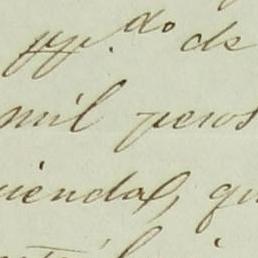 pp.do de
mil pesos
ienda, qu